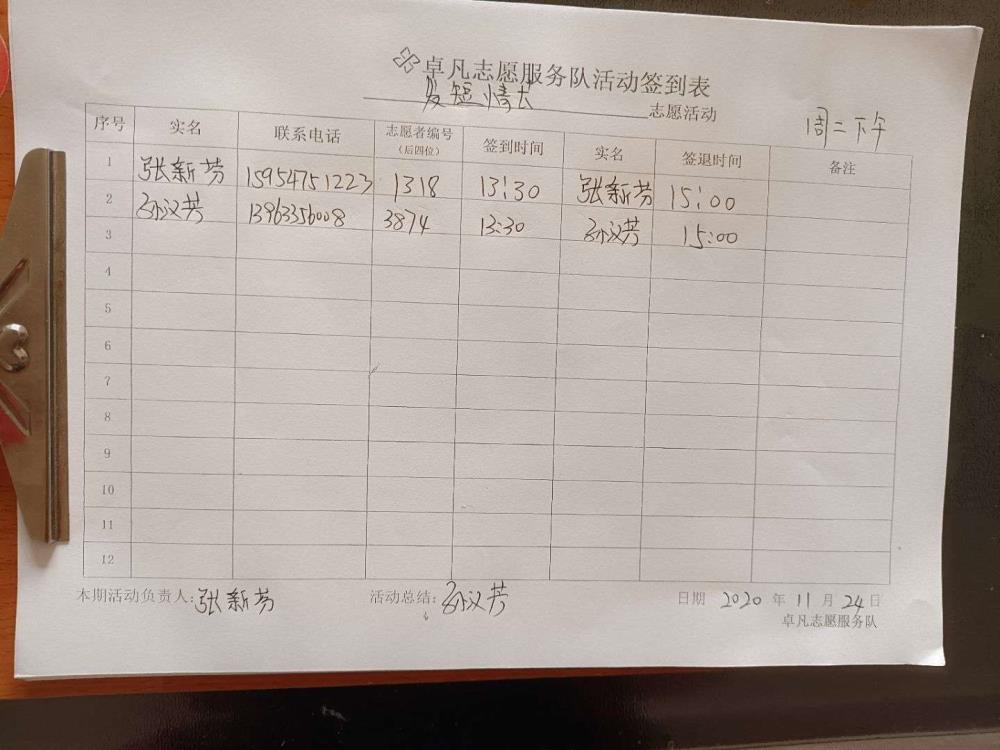 卓凡志愿服务队活动签到表
发短情长 志愿活动
周二下午
序号 实名 联系电话 志愿者编号（后四位） 签到时间 实名 签退时间 备注
1 张新芳 15954751223 1318 13:30 张新芳 15:00
2 孙汉芳 13963356008 3874 13:30 孙汉芳 15:00
3
4
5
6
7
8
9
10
11
12
本期活动负责人:张新芳 活动总结:孙汉芳 日期 2020 年 11 月 24 日
卓凡志愿服务队